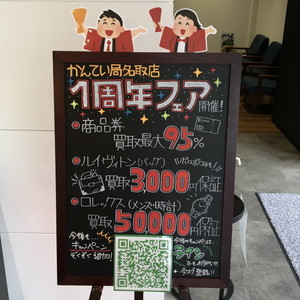 かんてい局名取店
1周年フェア
開催!
●商品券
買取最大95%
●ルイ・ヴィトン(バッグ)
買取3,000円保証
●ロレックス(メンズ時計)
買取50,000円保証
今後も
キャンペーン
ぞくぞく
ライン